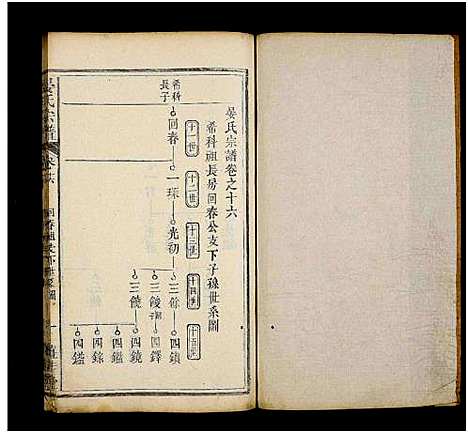 晏氏宗譜卷之十六
希科祖長房回春公支下子孫世系圖
十一世
十二世
十三世
十四世
十五世
希科長子
回春
一琛
光初
三餘
四鎮
三餕
四鐸
三饒
四鏡
四鎔
四鑑
晏氏宗譜
卷之十六
回春祖支下世系圖